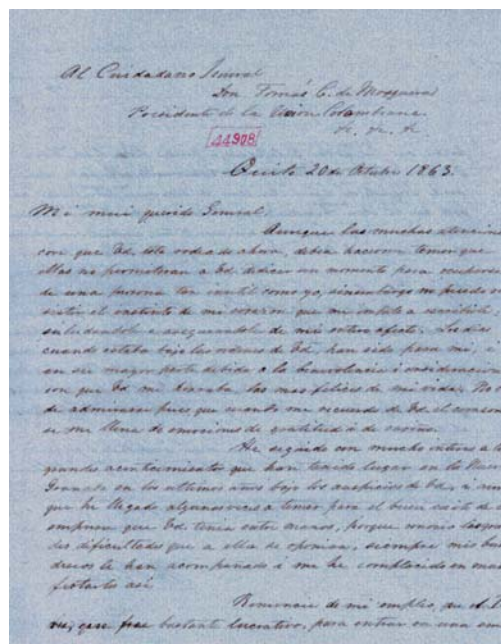 Al Cuidadano Jeneral
Don Tomás C. de Mosquera
Presidente de la Union Colombiana
&. &. &.
44908
Quito 20 de Octubre 1863.
Mi mui querido Jeneral
Aunque las muchas atencione
con que Ud. esta rodeado ahora, deben hacerme temer que
ellas no permitiran a Ud. dedicar un momento para
de una persona tan inutil como yo, sinembargo no puedo
el instinto de mi corazon que me impele a escribirle
saludandole e asegurandole de mi entero afecto. Los dias
cuando estaba bajo las ordenes de Ud. han sido para mi, i
en su mayor parte debido a la benevolencia i consideracion
con que Ud. me los mas felices de mi vida. No
de admirarse pues, que cuando me recuerdo de Ud. el corazon
se me llena de emociones de gratitud i de cariño.
He seguido con mucho interes a lo
grandes acontecimientos que han tenido lugar en la Nue
Granada en los ultimos años bajo los auspicios de Ud., i aun
que he llegado algunas veces a temer para el buen exito de
empresa que Ud. tenia entre manos, porque conocia las gran
des dificultades que a ella se oponian, siempre mis bue
deseos le han acompañado i me he complacido en man
festarlo asi
Renuncie de mi empleo, que
que fue bastante lucrativo, para entrar en una em